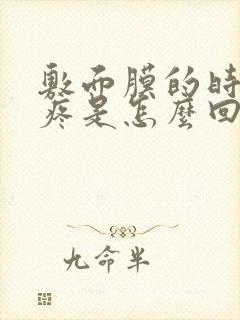 敷面膜的時
疼是怎麼回
九命半